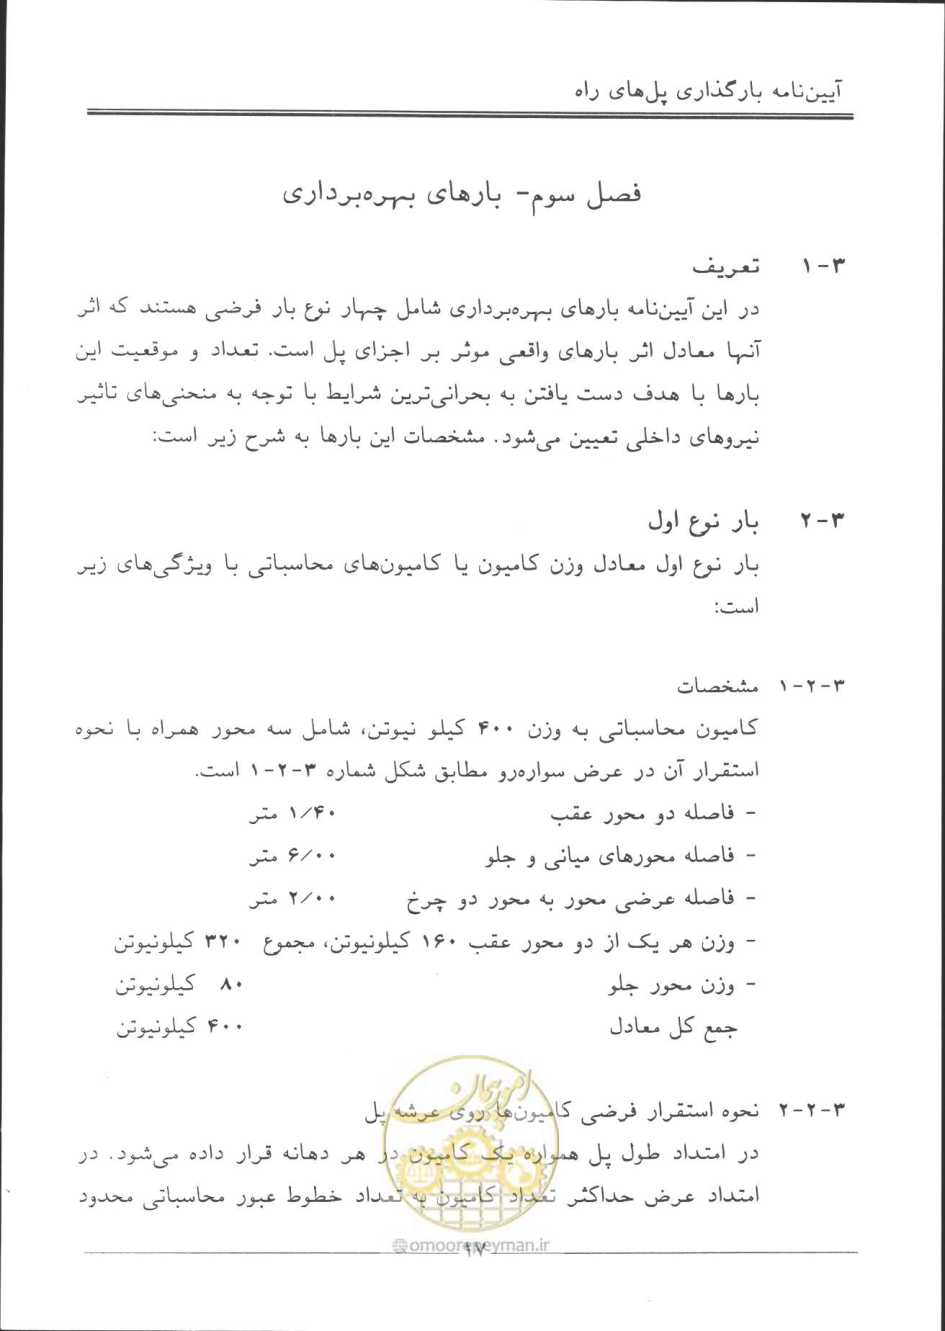 آیین‌نامه بارگذاری پل‌های راه
فصل سوم- بارهای بهره‌برداری
۳-۱ تعریف
در این آیین‌نامه بارهای بهره‌برداری شامل چهار نوع بار فرضی هستند که اثر
آنها معادل اثر بارهای واقعی موثر بر اجزای پل است. تعداد و موقعیت این
بارها با هدف دست یافتن به بحرانی‌ترین شرایط با توجه به منحنی‌های تاثیر
نیروهای داخلی تعیین می‌شود. مشخصات این بارها به شرح زیر است:
۳-۲ بار نوع اول
بار نوع اول معادل وزن کامیون یا کامیون‌های محاسباتی با ویژگی‌های زیر
است:
۳-۲-۱ مشخصات
کامیون محاسباتی به وزن ۴۰۰ کیلو نیوتن، شامل سه محور همراه با نحوه
استقرار آن در عرض سواره‌رو مطابق شکل شماره ۳-۲-۱ است.
- فاصله دو محور عقب ۱/۴۰ متر
- فاصله محورهای میانی و جلو ۶/۰۰ متر
- فاصله عرضی محور به محور دو چرخ ۲/۰۰ متر
- وزن هر یک از دو محور عقب ۱۶۰ کیلونیوتن، مجموع ۳۲۰ کیلونیوتن
- وزن محور جلو ۸۰ کیلونیوتن
جمع کل معادل ۴۰۰ کیلونیوتن
۳-۲-۲ نحوه استقرار فرضی کامیون‌ها روی عرشه پل
در امتداد طول پل همواره یک کامیون در هر دهانه قرار داده می‌شود. در
امتداد عرض حداکثر تعداد کامیون به تعداد خطوط عبور محاسباتی محدود
امور پیمان
omoorepeyman.ir
۱۷